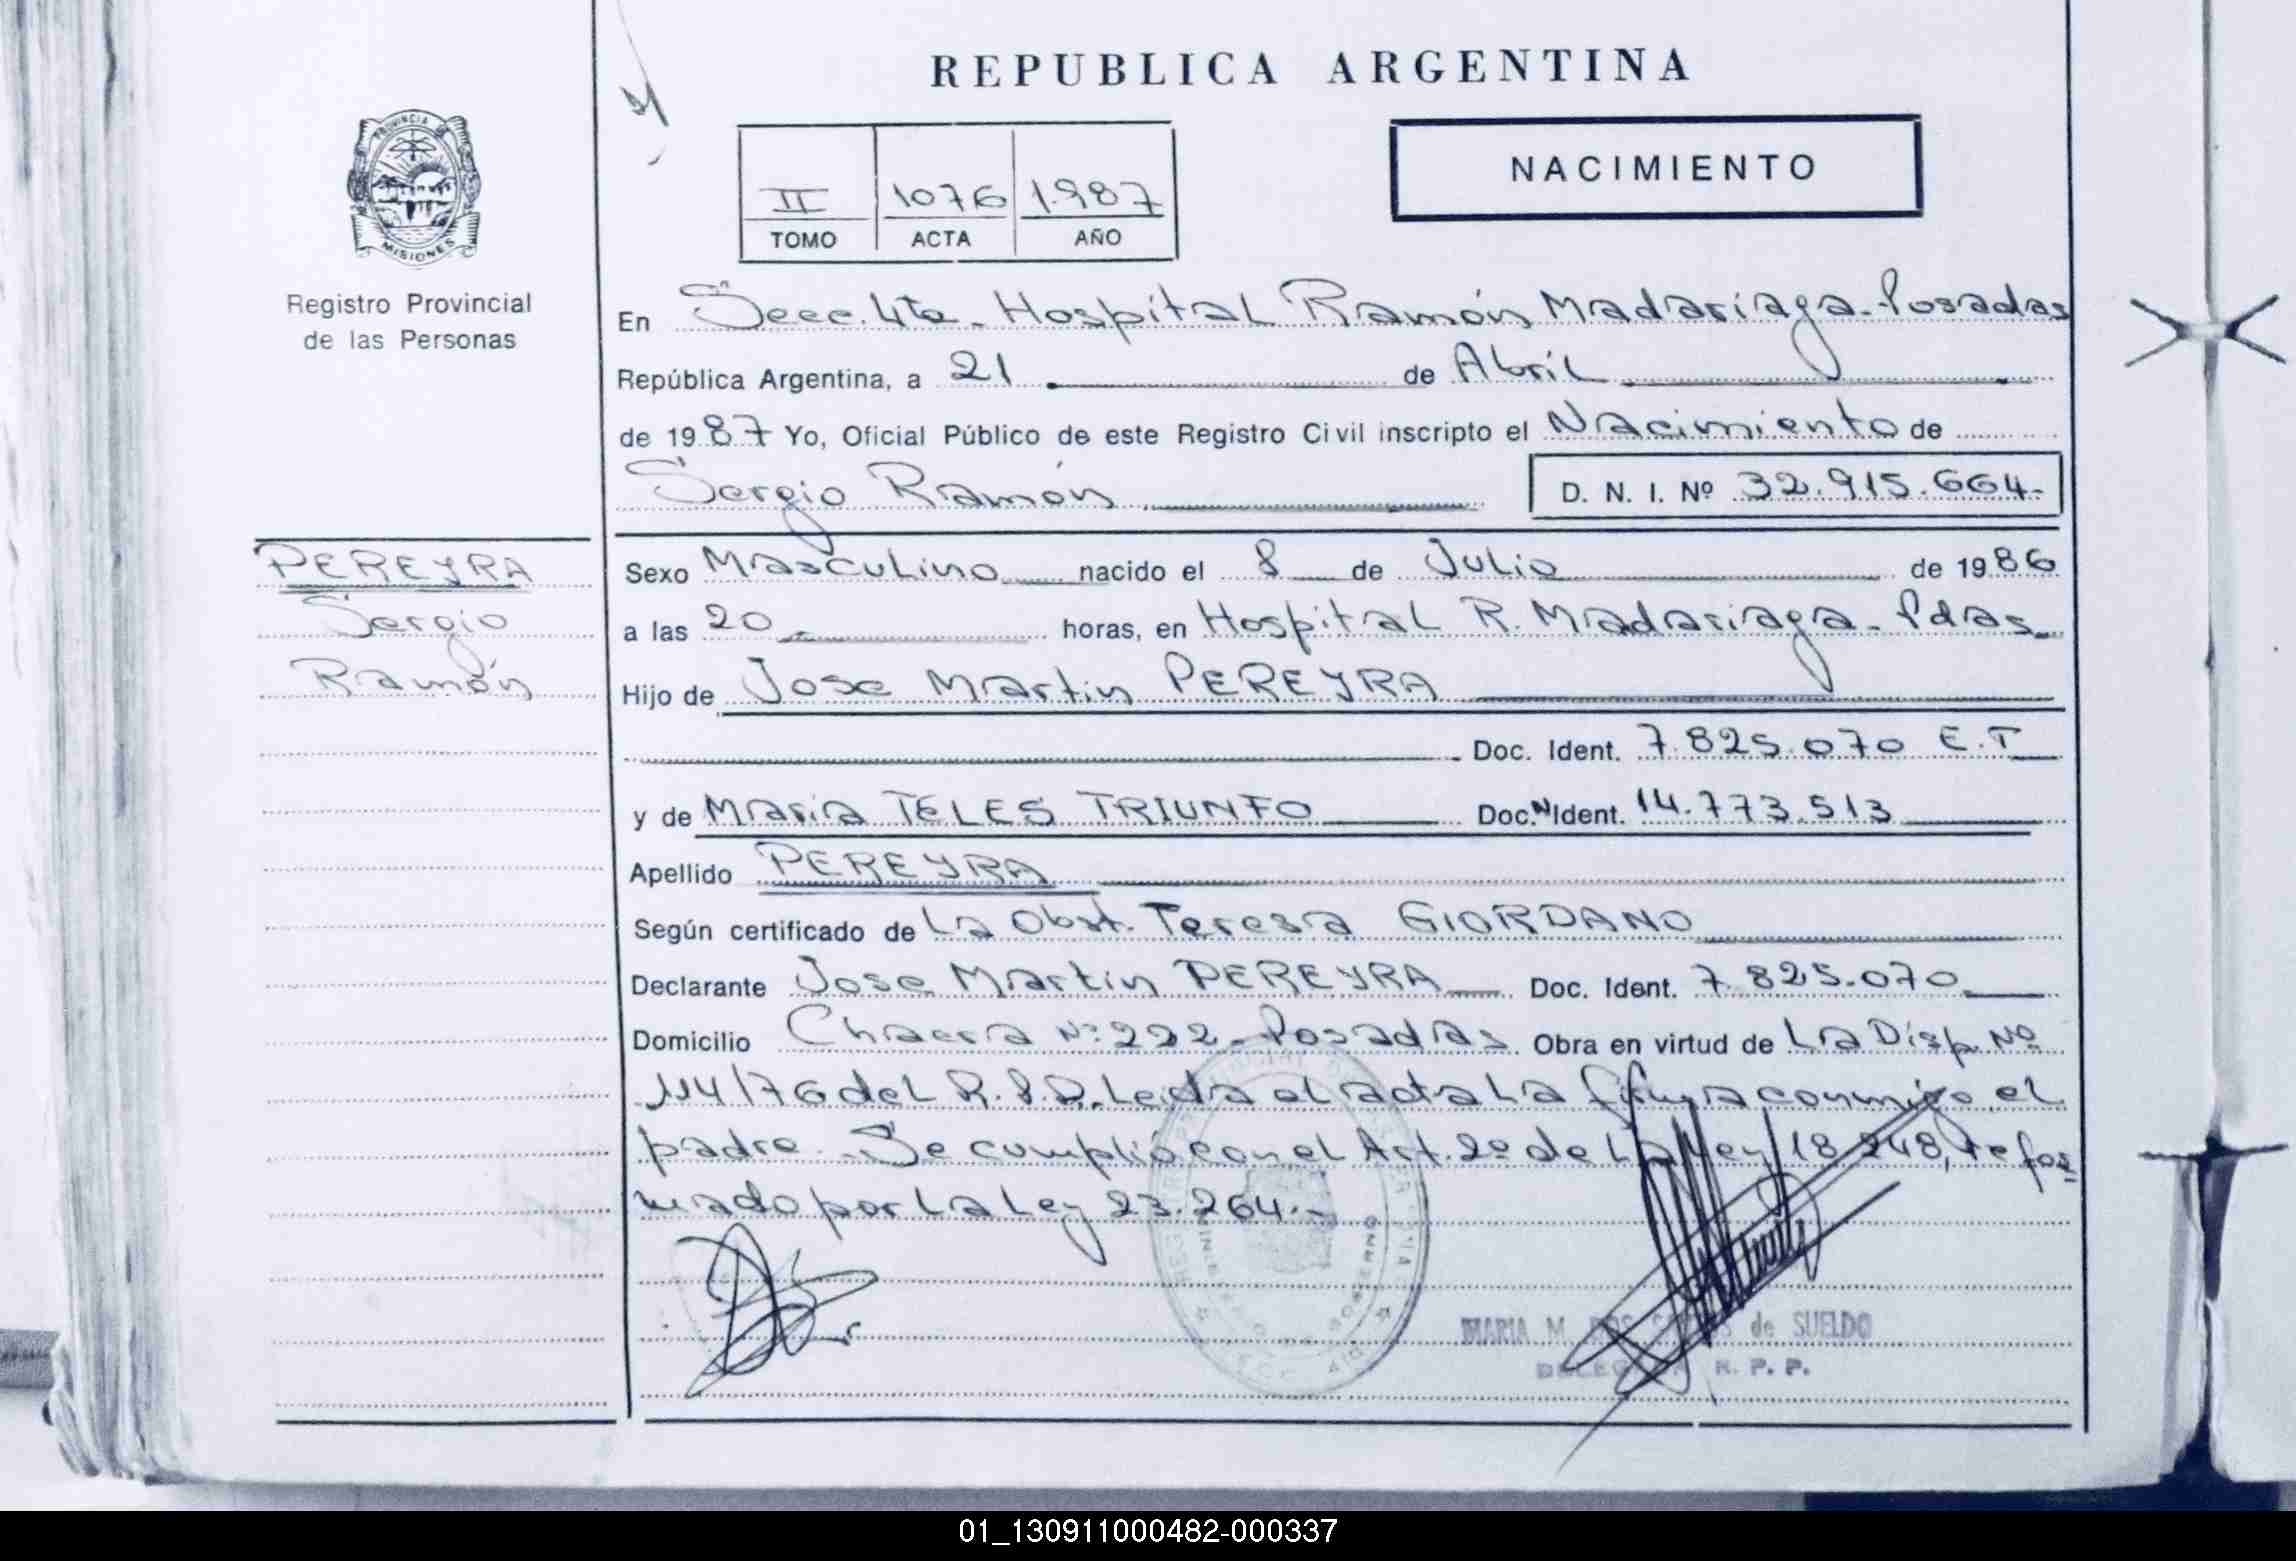 REPUBLICA ARGENTINA
PROVINCIA DE
MISIONES
Registro Provincial
de las Personas
II 1076 1.987
TOMO ACTA AÑO
NACIMIENTO
En Secc. 4ta. Hospital Ramón Madariaga - Posadas
República Argentina, a 21 de Abril
de 1987 Yo, Oficial Público de este Registro Civil inscripto el Nacimiento de
Sergio Ramón
D. N. I. Nº 32.915.664.-
PEREYRA
Sergio
Ramón
Sexo Masculino nacido el 8 de Julio de 1986
a las 20 horas, en Hospital R. Madariaga - Pdas
Hijo de Jose Martin PEREYRA
Doc. Ident. 7.825.070 E.T
y de Maria TELES TRIUNFO Doc.N Ident. 14.773.513
Apellido PEREYRA
Según certificado de La Obst. Teresa GIORDANO
Declarante Jose Martin PEREYRA Doc. Ident. 7.825.070
Domicilio Chacra Nº 222 - Posadas Obra en virtud de La Disp. Nº
114/76 del R.P.P. Leida el acta La firma conmigo el
padre. - Se cumplió con el Art. 2º de La Ley 18.248, refor
mado por La Ley 23.264.-
MINISTERIO DE GOBIERNO
MARIA M. DOS SANTOS de SUELDO
DELEGADA R. P. P.
01_130911000482-000337